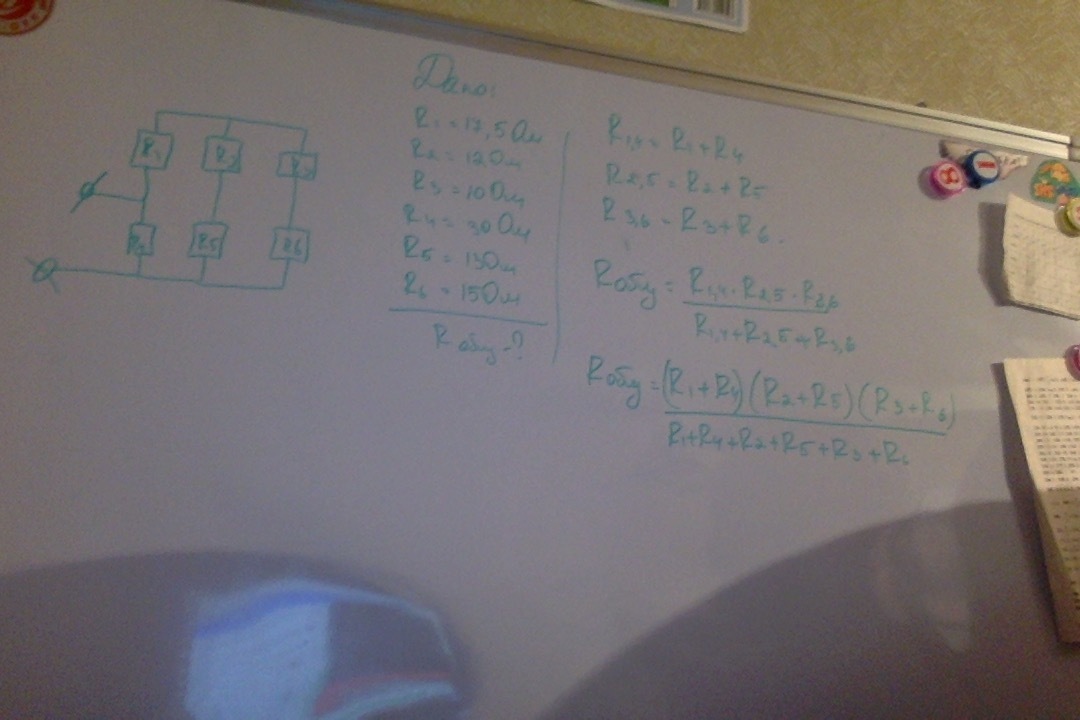 R1
R2
R3
R4
R5
R6
Дано:
R1 = 17,5 Ом
R2 = 12 Ом
R3 = 10 Ом
R4 = 30 Ом
R5 = 13 Ом
R6 = 15 Ом
R общ - ?
R1,4 = R1 + R4
R2,5 = R2 + R5
R3,6 = R3 + R6.
Rобщ = R1,4 · R2,5 · R3,6
R1,4 + R2,5 + R3,6
Rобщ = (R1 + R4)(R2 + R5)(R3 + R6)
R1 + R4 + R2 + R5 + R3 + R6